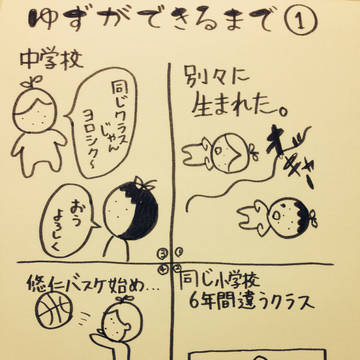 ゆずができるまで①
別々に
生まれた。
オギャー
同じ小学校
6年間違うクラス
中学校
同じクラス
じゃん
ヨロシク〜
おう
よろしく
悠仁バスケ始め…